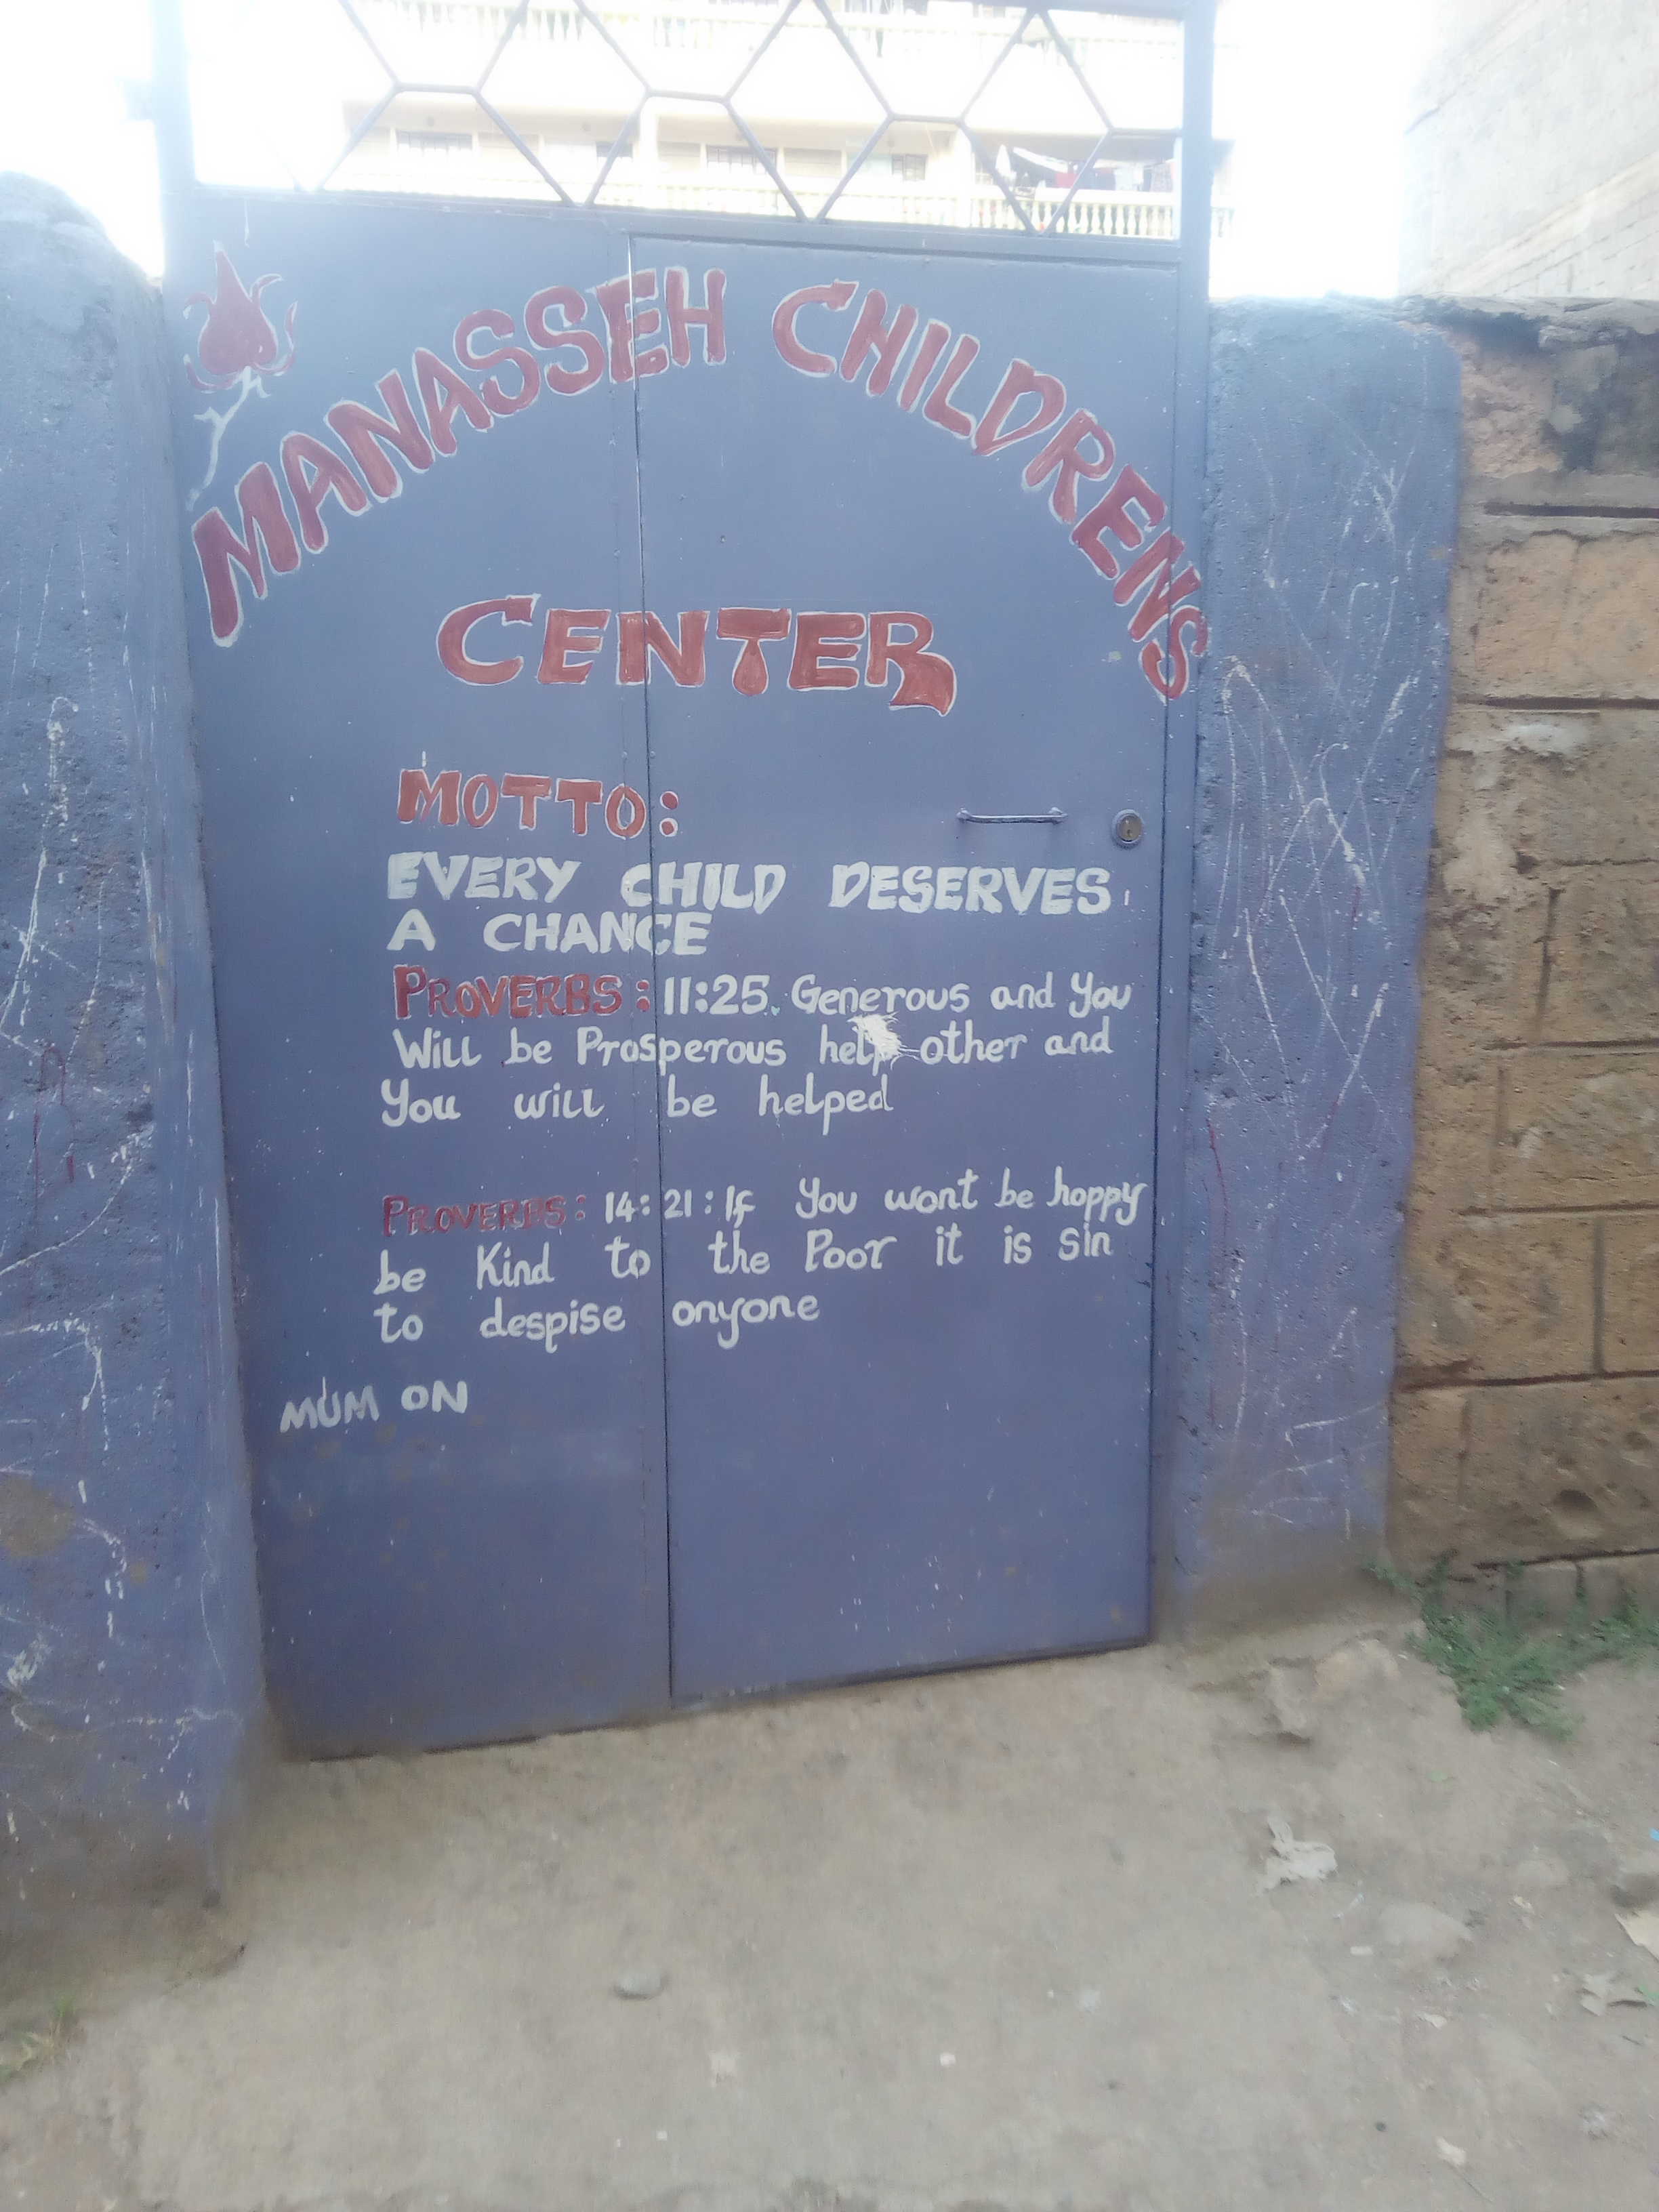 MANASSEH CHILDRENS
CENTER
MOTTO:
EVERY CHILD DESERVES
A CHANCE
PROVERBS: 11:25. Generous and You
Will be Prosperous help other and
You will be helped
PROVERBS: 14:21: If You wont be hoppy
be Kind to the Poor it is sin
to despise onyone
MUM ON